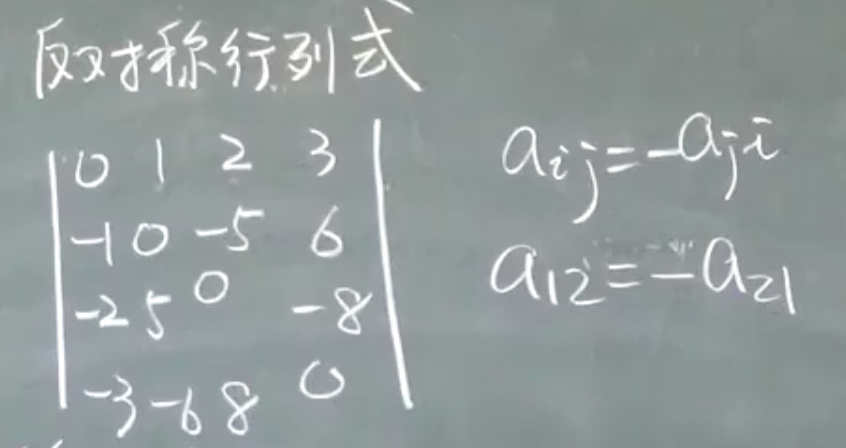 反对称行列式
0 1 2 3
-1 0 -5 6
-2 5 0 -8
-3 -6 8 0
aij=-aji
a12=-a21